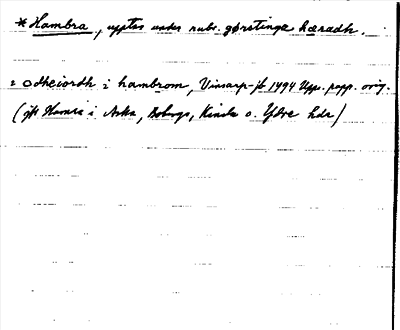 *Hambra, upptas under rubr. gørstinga hæradh.
i odheiordh i hambrom, Vinsarp-jb 1494 Upps. papp. orig.
(jfr Hamra i Aska, Bobergs, Kinda o. Ydre hdr)